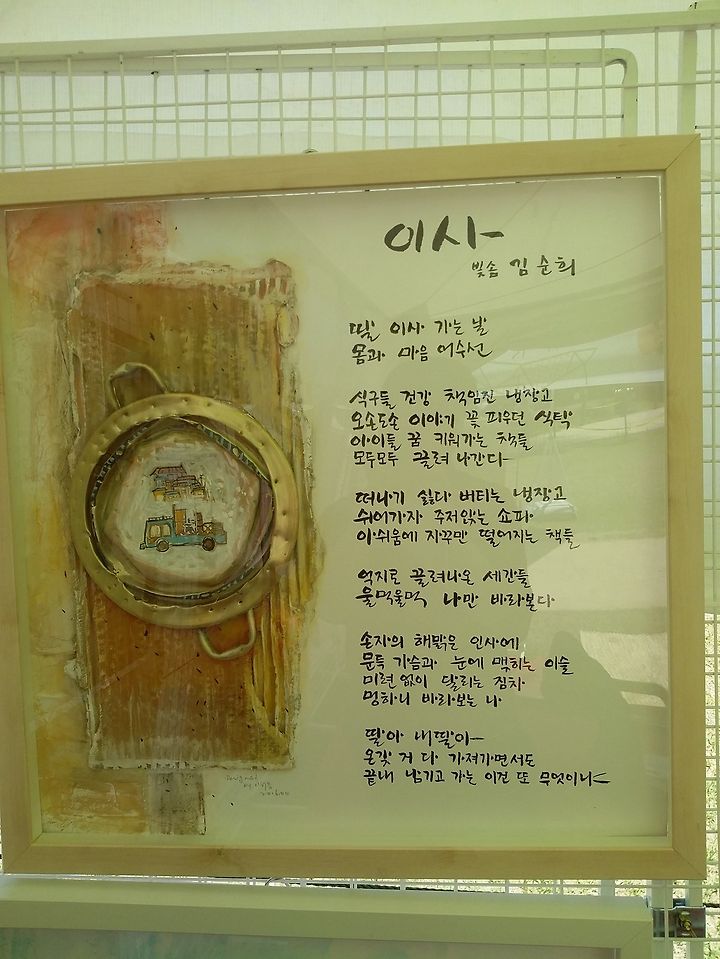 이사
빛솔 김순희
딸 이사 가는 날
몸과 마음 어수선
식구들 건강 책임진 냉장고
오손도손 이야기 꽃 피우던 식탁
아이들 꿈 키워가는 책들
모두모두 끌려 나간다
떠나기 싫다 버티는 냉장고
쉬어가자 주저앉는 쇼파
아쉬움에 자꾸만 떨어지는 책들
억지로 끌려나온 세간들
울먹울먹 나만 바라본다
손자의 해맑은 인사에
문득 가슴과 눈에 맺히는 이슬
미련 없이 달리는 짐차
멍하니 바라보는 나
딸아 내딸아
온갖 거 다 가져가면서도
끝내 남기고 가는 이건 또 무엇이냐